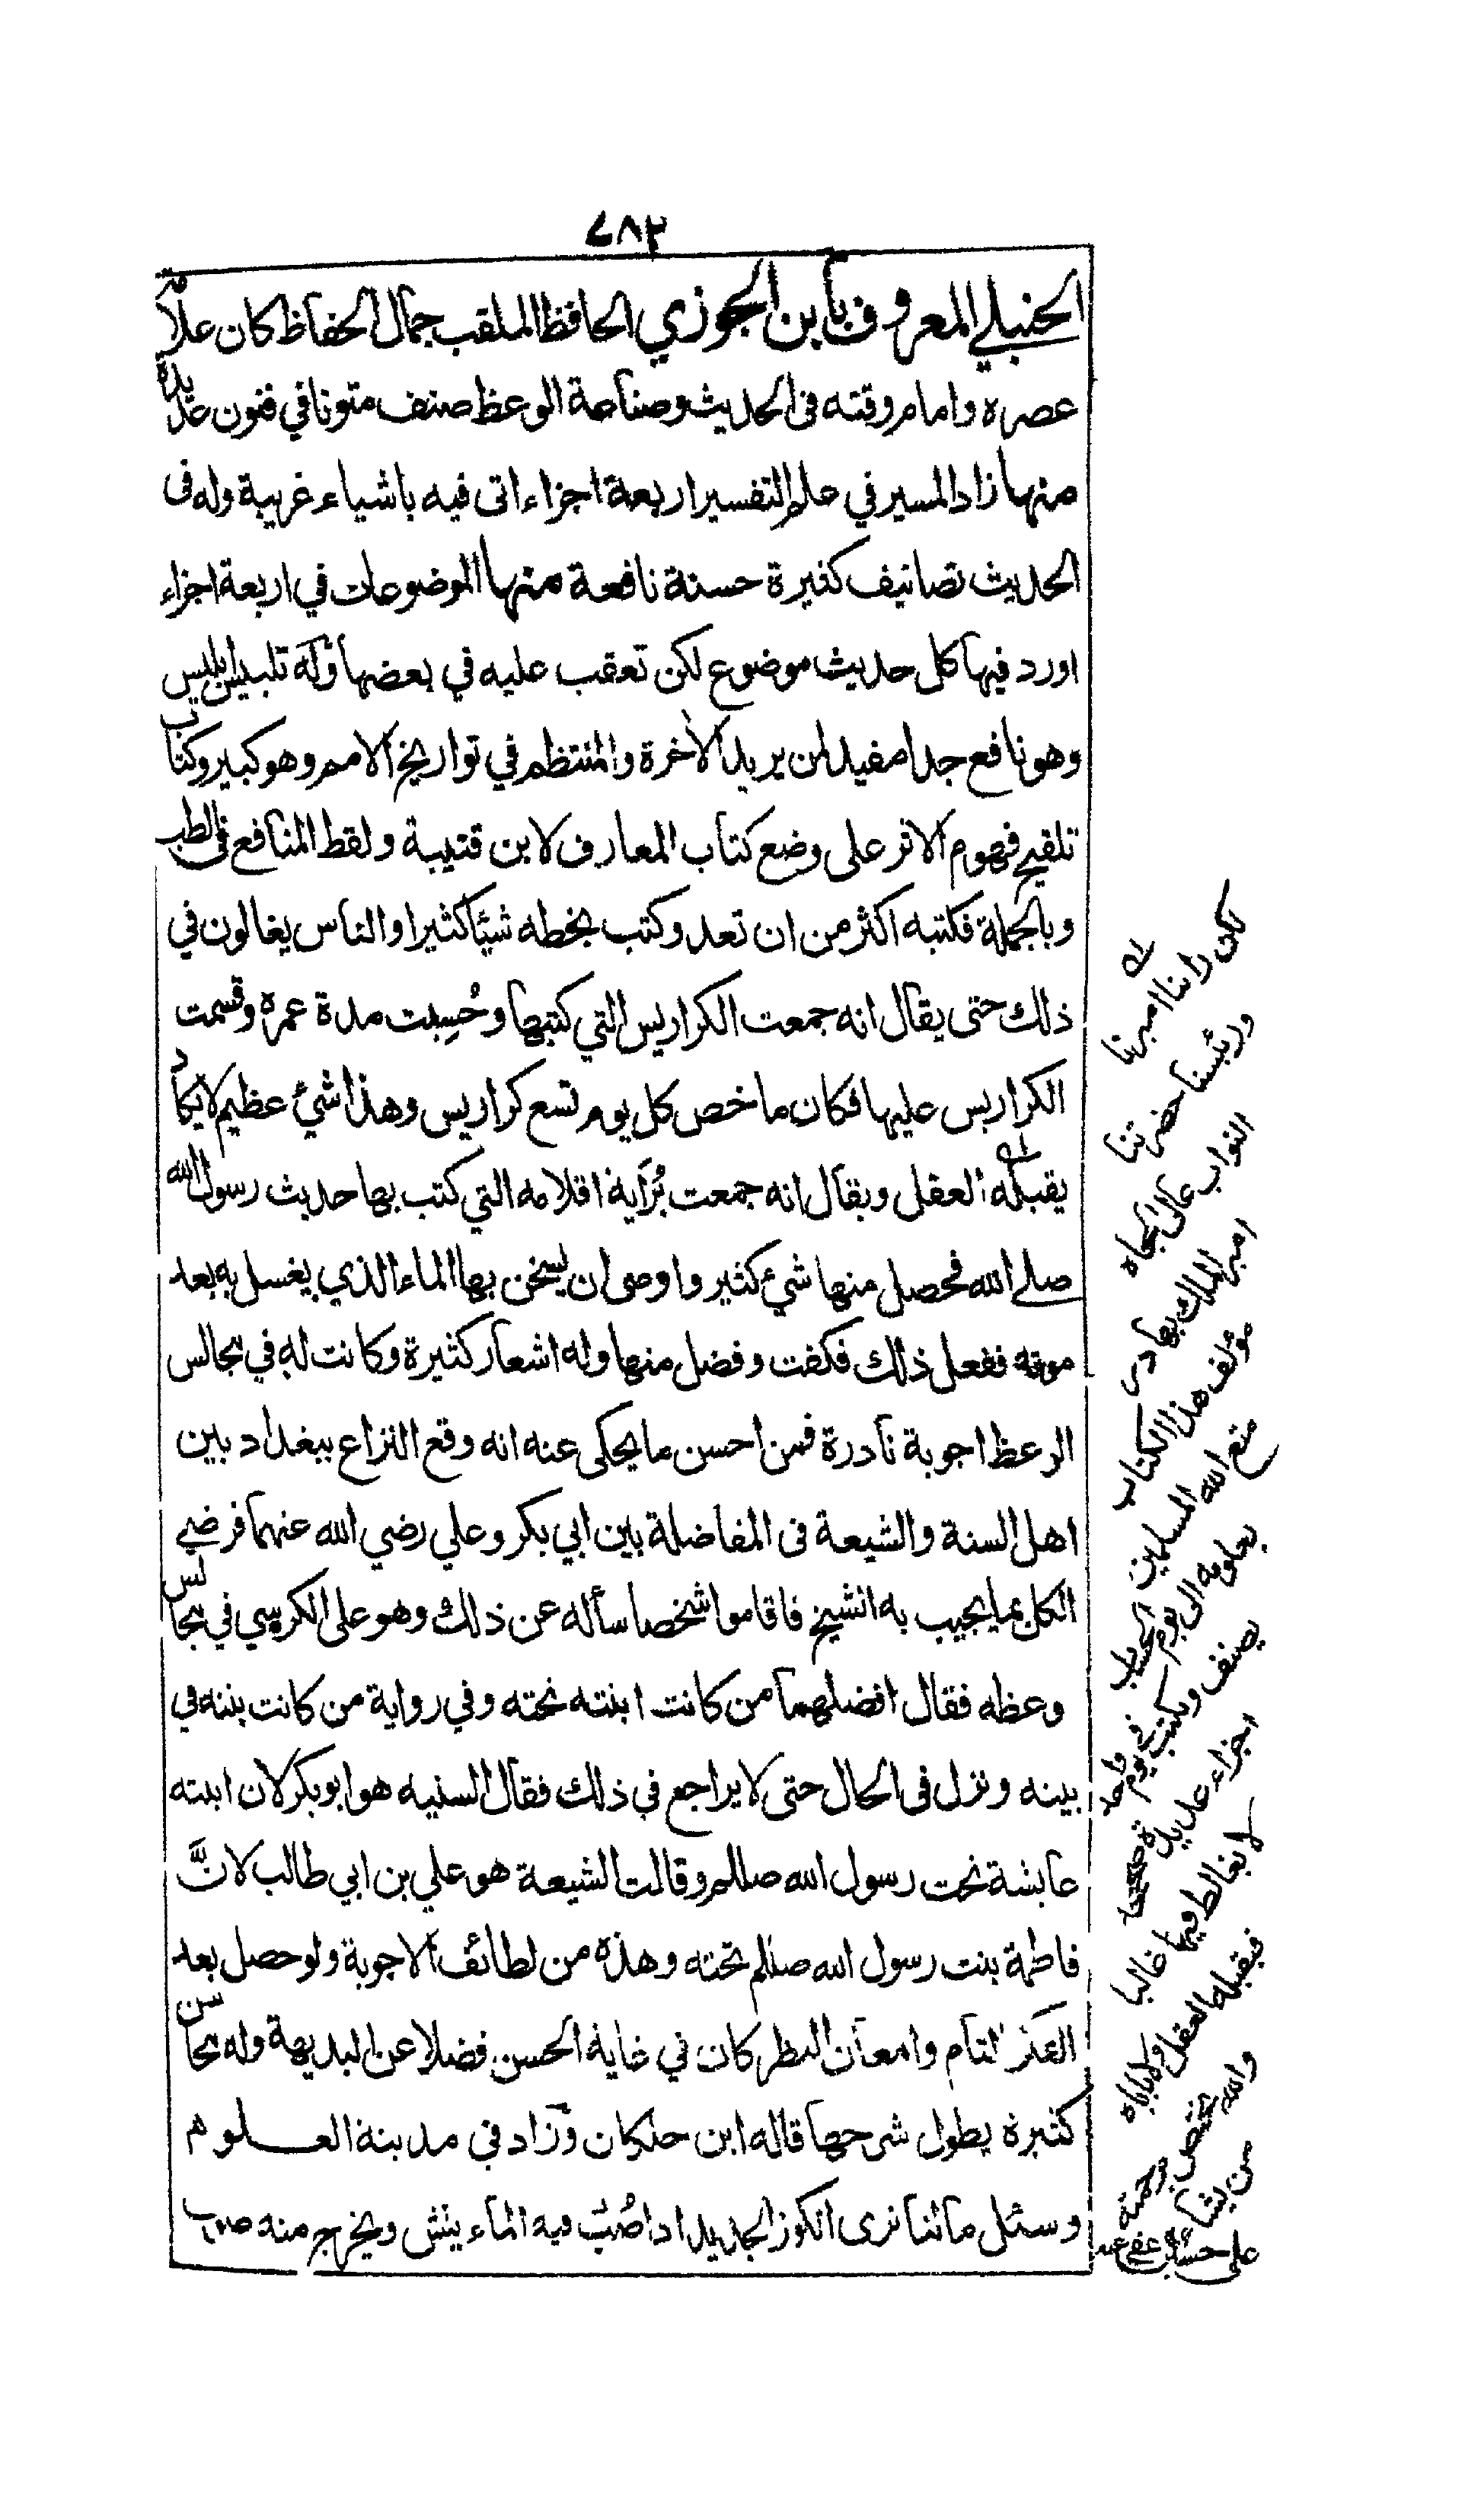 ٧٨٢
الحنبلي المعروف بابن الجوزي الحافظ الملقب جمال الحفاظ كان علامة
عصره وامام وقته فى الحديث وصناعة الوعظ صنف متونا في فنون عديدة
منها زاد المسير في علم التفسير اربعة اجزاء اتى فيه باشياء غريبة وله فى
الحديث تصانيف كثيرة حسنة نافعة منها الموضوعات في اربعة اجزاء
اورد فيها كل حديث موضوع لكن تعقب عليه في بعضها وله تلبيس ابليس
وهو نافع جدا مفيد لمن يريد الآخرة والمنتظم في تواريخ الامم وهو كبير وكتاب
تلقيح فهوم الاثر على وضع كتاب المعارف لابن قتيبة ولقط المنافع فى الطب
وبالجملة فكتبه اكثر من ان تعد وكتب بخطه شيئا كثيرا والناس يغالون في
ذلك حتى يقال انه جمعت الكراريس التي كتبها وحُسِبت مدة عمره وقسمت
الكراريس عليها فكان ما خص كل يوم تسع كراريس وهذا شيء عظيم لا يكاد
يقبله العقل ويقال انه جمعت بُرَاية اقلامه التي كتب بها حديث رسول الله
صلے الله فحصل منها شيء كثير واوصى ان يسخن بها الماء الذي يغسل به بعد
موته ففعل ذلك فكفت وفضل منها وله اشعار كثيرة وكانت له في مجالس
الوعظ اجوبة نادرة فمن احسن ما يحكى عنه انه وقع النزاع ببغداد بين
اهل السنة والشيعة فى المفاضلة بين ابي بكر وعلي رضي الله عنهما فرضي
الكل بما يجيب به الشيخ فاقاموا شخصا سأله عن ذلك وهو على الكرسي في مجالس
وعظه فقال افضلهما من كانت ابنته تحته وفي رواية من كانت بنته في
بيته ونزل فى الحال حتى لا يراجع في ذلك فقال السنيه هو ابو بكر لان ابنته
عايشة تحت رسول الله صللم وقالت الشيعة هو علي بن ابي طالب لانَّ
فاطمة بنت رسول الله صللم تحته وهذه من لطائف الاجوبة ولو حصل بعد
الفكر التام وامعان النظر كان في غاية الحسن فضلا عن البديهة وله محاسن
كثيرة يطول شرحها قاله ابن خلكان وزاد في مدينة العلوم
وسئل ما لنا نرى الكوز الجديد اذا صُبّ فيه الماء ينش ويخرج منه صوت
لكن رأينا اميرنا
ورئيسنا حضرتنا
النواب عالى الجاه
امير الملك بهادر
مؤلف هذا الكتاب
متع الله المسلمين
بعلومه الى يوم الحساب
يصنف ويكتب فى يوم واحد
اجزاء عديدة
لا يغالط فيها غالبا
فيقبله العقل ولا ياباه
والله يختص برحمته
من يشاء
على حسن عفى عنه